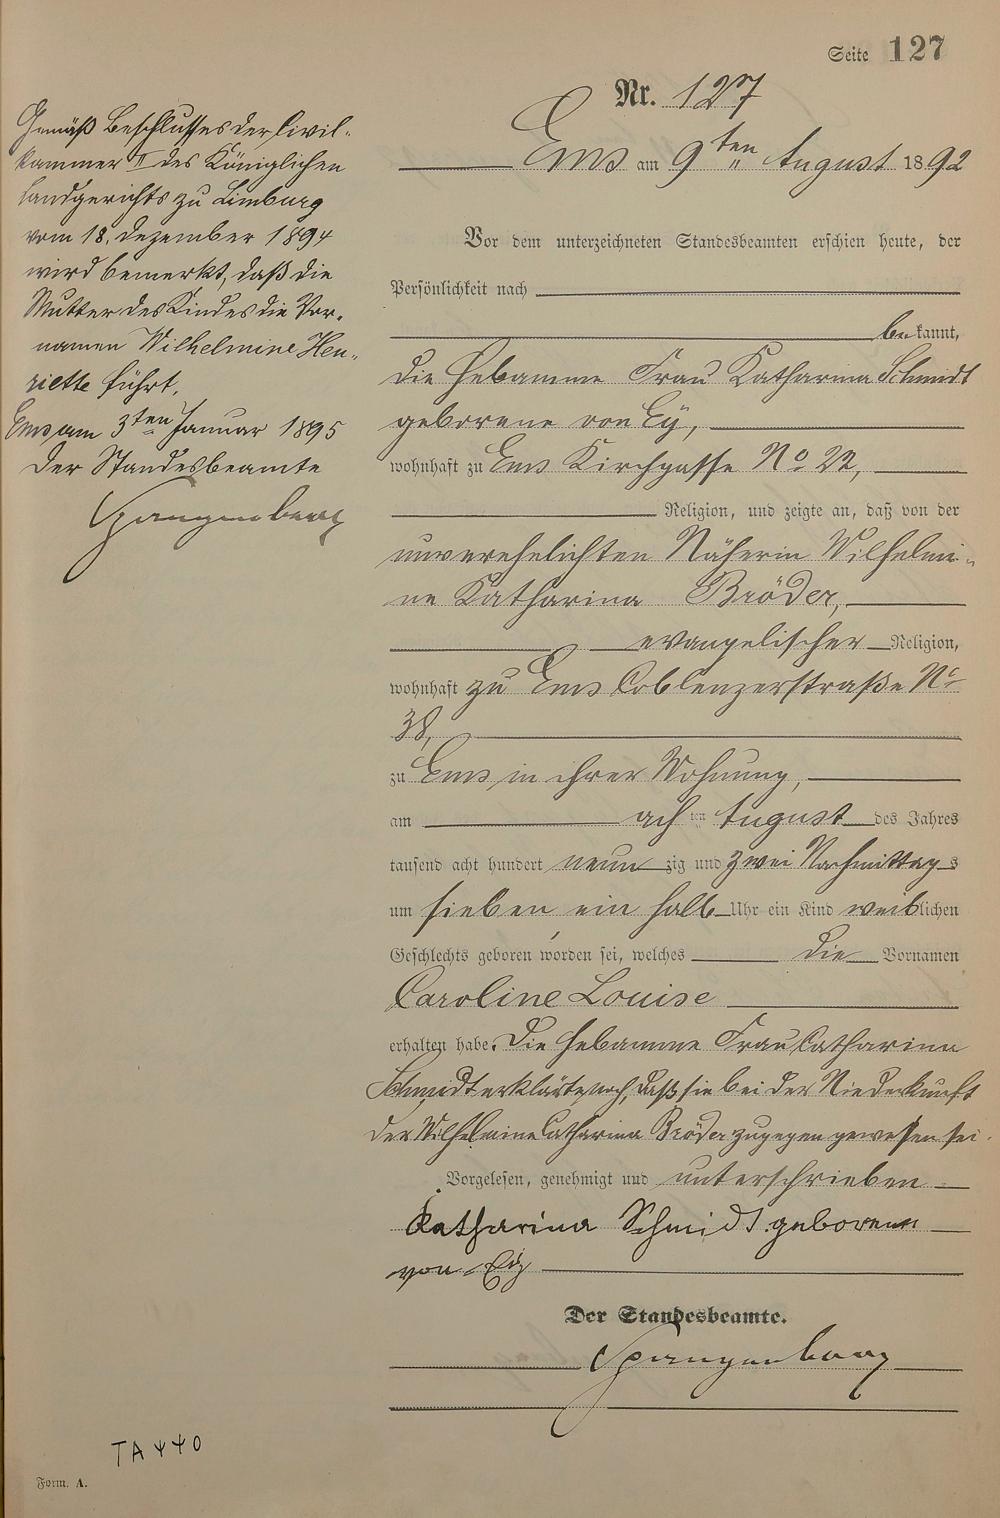 Seite 127
Nr. 127
Ems am 9ten August 1892
Vor dem unterzeichneten Standesbeamten erschien heute, der
Persönlichkeit nach
bekannt,
die Hebamme Frau Katharina Schmidt
geborene von Eÿ,
wohnhaft zu Ems Kirchgasse No 22,
Religion, und zeigte an, daß von der
unverehelichten Näherin Wilhelmi-
ne Katharina Bröder,
evangelischer Religion,
wohnhaft zu Ems Coblenzerstraße No
38,
zu Ems in ihrer Wohnung,
am achten August des Jahres
tausend acht hundert neunzig und zwei Nachmittags
um sieben ein halb Uhr ein Kind weiblichen
Geschlechts geboren worden sei, welches die Vornamen
Caroline Louise
erhalten habe. Die Hebamme Frau Catharina
Schmidt erklärte noch, daß sie bei der Niederkunft
der Wilhelmine Catharina Bröder zugegen gewesen sei.
Vorgelesen, genehmigt und unterschrieben
Katharina Schmidt geborene
von Eÿ
Der Standesbeamte.
Spangenberg
Gemäß Beschlusses der Civil-
kammer II des Königlichen
Landgerichts zu Limburg
vom 18. Dezember 1894
wird bemerkt, daß die
Mutter des Kindes die Vor-
namen Wilhelmine Hen-
riette führt.
Ems am 3ten Januar 1895
Der Standesbeamte
Spangenberg
TA 440
Form. A.